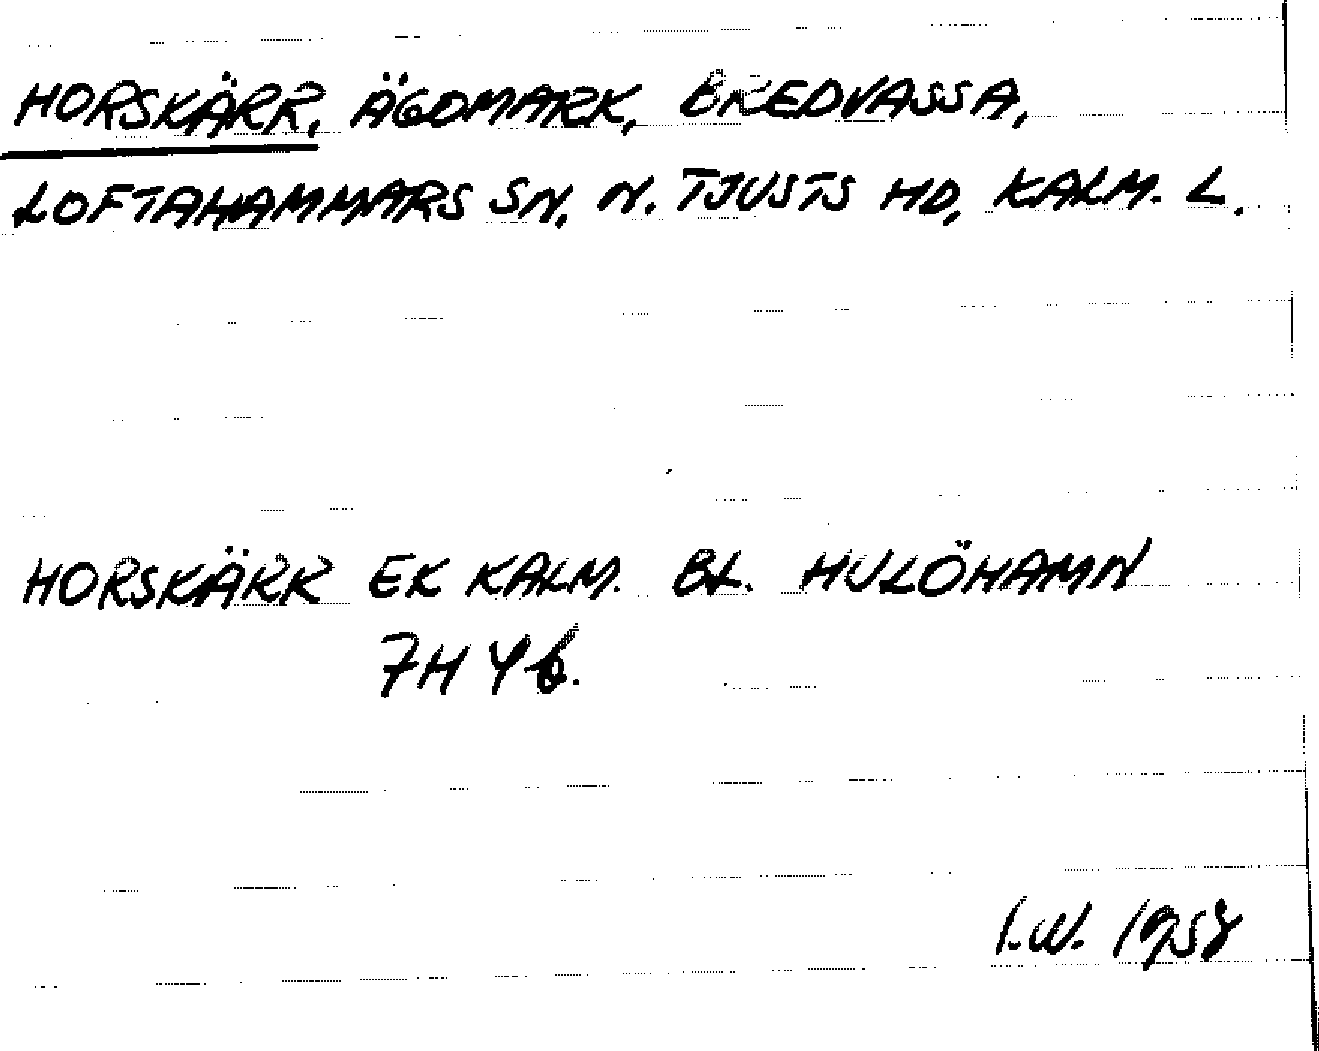 HORSKÄRR, ÄGOMARK, BREDVASSA,
LOFTAHAMMARS SN, N. TJUSTS HD, KALM. L.
HORSKÄRR EK KALM. BL. HULÖHAMN
7H 4b.
I.W. 1958